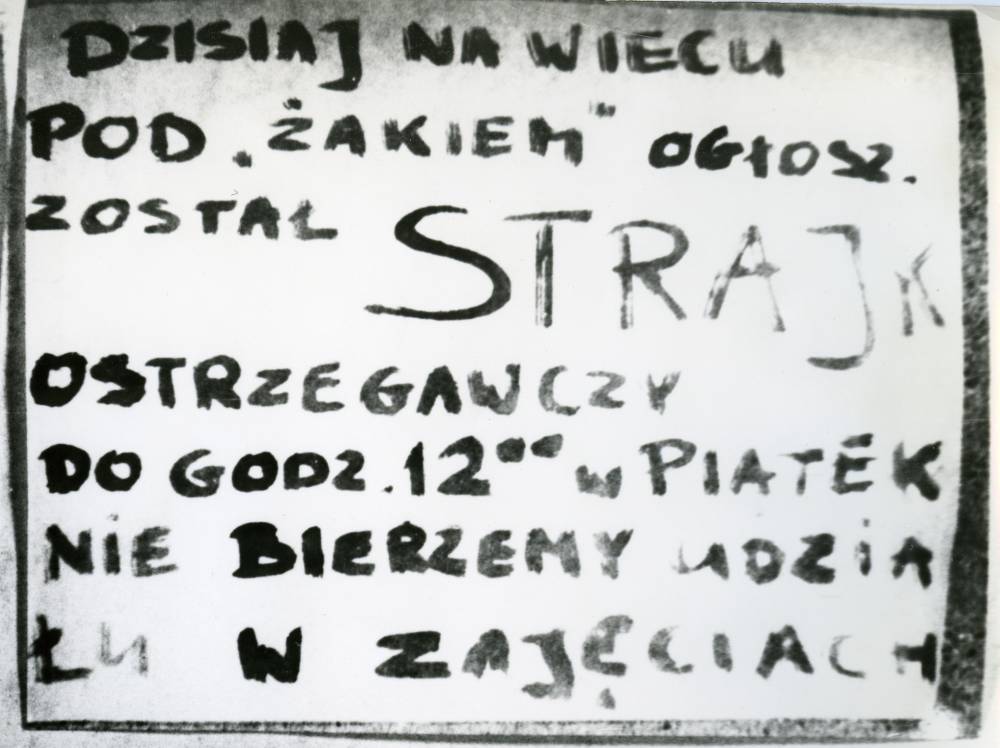 DZISIAJ NA WIECU
POD „ŻAKIEM" OGŁOSZ.
ZOSTAŁ STRAJK
OSTRZEGAWCZY
DO GODZ. 12°° w PIATEK
NIE BIERZEMY UDZIA
ŁU W ZAJĘCIACH